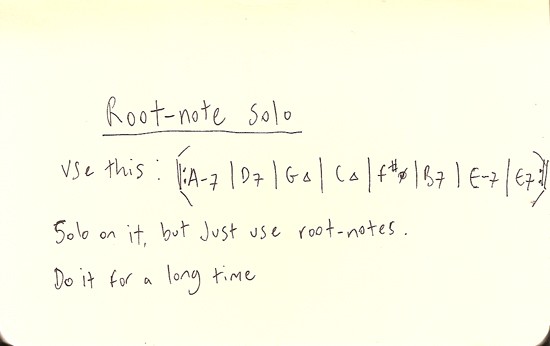 Root-note solo
Use this: |: A-7 | D7 | G△ | C△ | f#ø | B7 | E-7 | E7 :|
Solo on it, but Just use root-notes.
Do it for a long time